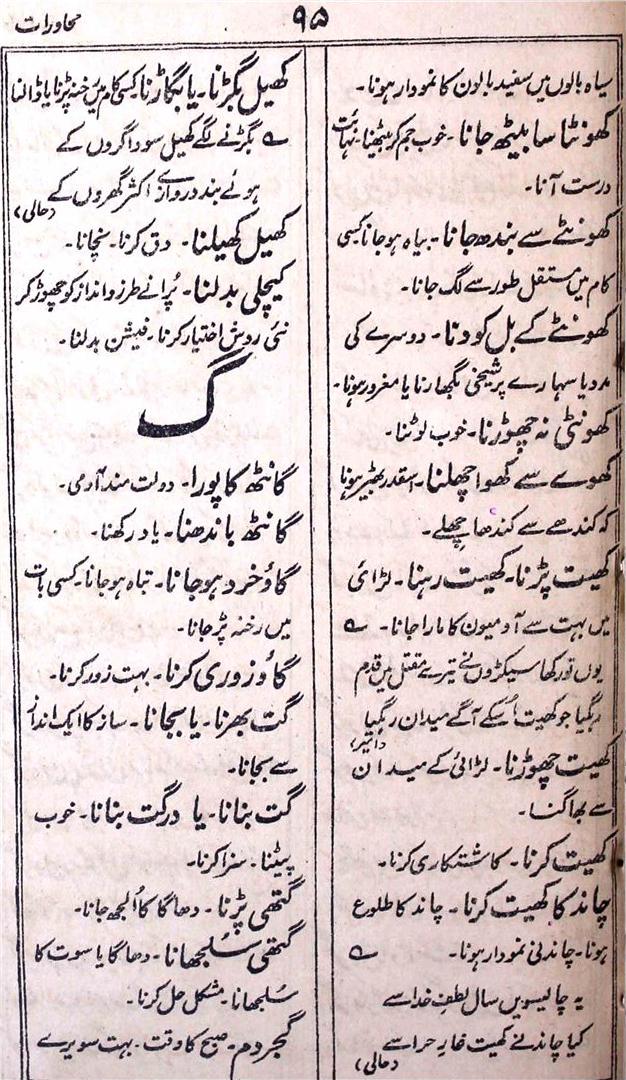 محاورات
۹۵
سیاہ بالوں میں سفید بالوں کا نمودار ہونا۔
کھونٹا سا بیٹھ جانا۔ خوب جم کر بیٹھنا۔ نہایت
درست آنا۔
کھونٹے سے بندھ جانا۔ بیاہ ہو جانا کسی
کام میں مستقل طور سے لگ جانا۔
کھونٹے کے بل کودنا۔ دوسرے کی
مدد یا سہارے پر شیخی بگھارنا یا مغرور ہونا۔
کھونٹی نہ چھوڑنا۔ خوب لوٹنا۔
کھوے سے کھوا چھلنا۔ اسقدر بھیڑ ہونا
کہ کندھے سے کندھا چھلے۔
کھیت پڑنا۔ کھیت رہنا۔ لڑائی
میں بہت سے آدمیوں کا مارا جانا۔ ؎
یوں تو رکھا سیکڑوں نے تیرے مقتل میں قدم
رہگیا جو کھیت اُسکے آگے میدان رہگیا
کھیت چھوڑنا۔ لڑائی کے میدان
سے بھاگنا۔
کھیت کرنا۔ کاشتکاری کرنا۔
چاند کا کھیت کرنا۔ چاند کا طلوع
ہونا۔ چاندنی نمودار ہونا۔ ؎
یہ چالیسویں سال لطفِ خدا سے
کیا چاند نے کھیت غارِ حرا سے
(حالی)
کھیل بگڑنا۔ یا بگاڑنا۔ کسی کام میں رخنہ پڑنا یا ڈالنا
؎ بگڑنے لگے کھیل سوداگروں کے
ہوئے بند دروازے اکثر گھروں کے
(حالی)
کھیل کھیلنا۔ دق کرنا۔ نچانا۔
کیچلی بدلنا۔ پُرانے طرز و انداز کو چھوڑ کر
نئی روش اختیار کرنا۔ فیشن بدلنا۔
گ
گانٹھ کا پورا۔ دولت مند آدمی۔
گانٹھ باندھنا۔ یاد رکھنا۔
گاؤخرد ہو جانا۔ تباہ ہو جانا۔ کسی بات
میں رخنہ پڑ جانا۔
گاؤ زوری کرنا۔ بہت زور کرنا۔
گت بھرنا۔ یا بجانا۔ ساز کا ایک انداز
سے بجانا۔
گت بنانا۔ یا درگت بنانا۔ خوب
پیٹنا۔ سزا کرنا۔
گتھی پڑنا۔ دھاگا کا اُلجھ جانا۔
گتھی سُلجھانا۔ دھاگا یا سوت کا
سُلجھانا۔ مشکل حل کرنا۔
گجردم۔ صبح کا وقت۔ بہت سویرے